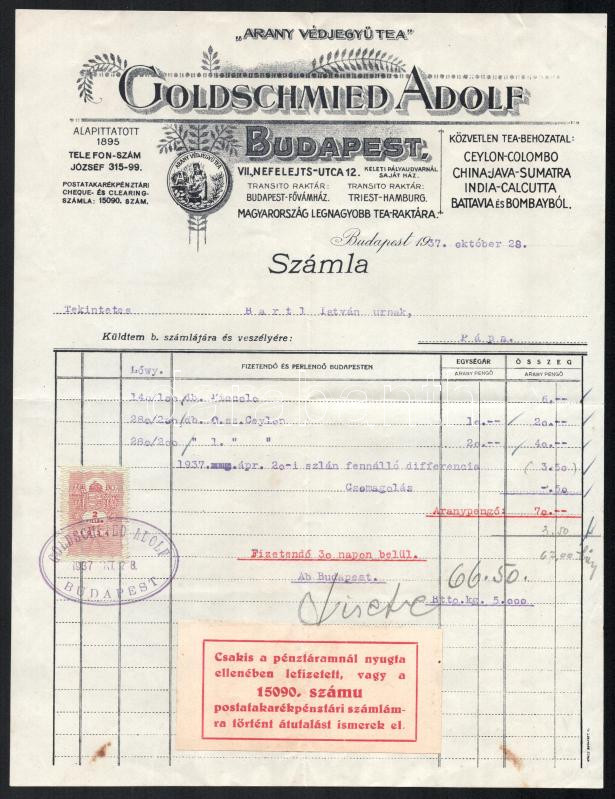 „ARANY VÉDJEGYŰ TEA"
GOLDSCHMIED ADOLF
BUDAPEST,
ALAPITTATOTT
1895
TELEFON-SZÁM
JÓZSEF 315-99.
POSTATAKARÉKPÉNZTÁRI
CHEQUE- ÉS CLEARING-
SZÁMLA: 15090. SZÁM.
ARANY VÉDJEGYŰ TEA
VII, NEFELEJTS-UTCA 12. KELETI PÁLYAUDVARNÁL
SAJÁT HÁZ.
TRANSITO RAKTÁR: TRANSITO RAKTÁR:
BUDAPEST-FŐVÁMHÁZ. TRIEST-HAMBURG.
MAGYARORSZÁG LEGNAGYOBB TEA-RAKTÁRA.
KÖZVETLEN TEA-BEHOZATAL:
CEYLON-COLOMBO
CHINA:JAVA-SUMATRA
INDIA-CALCUTTA
BATTAVIA ÉS BOMBAYBÓL.
Budapest 1937. október 28.
Számla
Tekintetes Bartl István urnak,
Küldtem b. számlájára és veszélyére: Pápa.
Lőwy. FIZETENDŐ ÉS PERLENDŐ BUDAPESTEN EGYSÉGÁR ÖSSZEG
ARANY PENGŐ ARANY PENGŐ
140/100/db. Piccolo 6.--
280/200/db. O.sz.Ceylon 10.-- 20.--
280/200/ " 1. " " 20.-- 40.--
1937. ápr. 20-i szlán fennálló differencia (3.50)
Csomagolás -.50
Aranypengő: 70.--
3.50
67.00
Fizetendő 30 napon belül.
Ab Budapest.
66.50.
Btto.kg. 5.000
2
GOLDSCHMIED ADOLF
1937 OKT 28.
BUDAPEST
Csakis a pénztáramnál nyugta
ellenében lefizetett, vagy a
15090. számu
postatakarékpénztári számlám-
ra történt átutalást ismerek el.